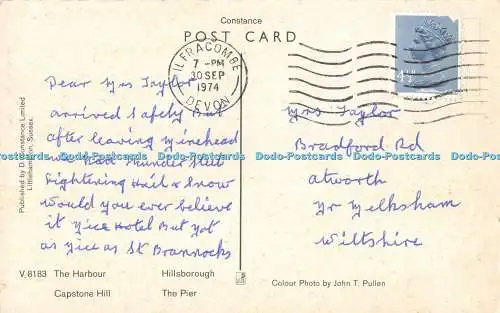 Constance
POST CARD
ILFRACOMBE
7 - PM
30 SEP
1974
DEVON
4½P
Dear Mrs Taylor
arrived safely But
after leaving Minehead
we had thunder Hill
Lightening Hail & Snow
would you ever believe
it Nice Hotel But Not
as Nice as St Brannocks
Mrs Taylor
Bradford Rd
Atworth
Nr Melksham
Wiltshire
Published by D. Constance Limited
Littlehampton, Sussex.
V.8183 The Harbour Hillsborough
Capstone Hill The Pier
Colour Photo by John T. Pullen
Dodo-Postcards Dodo-Postcards Dodo-Postcards Dodo-Postcards Dodo-Postcards Dodo-Postcards Dodo-Postcards